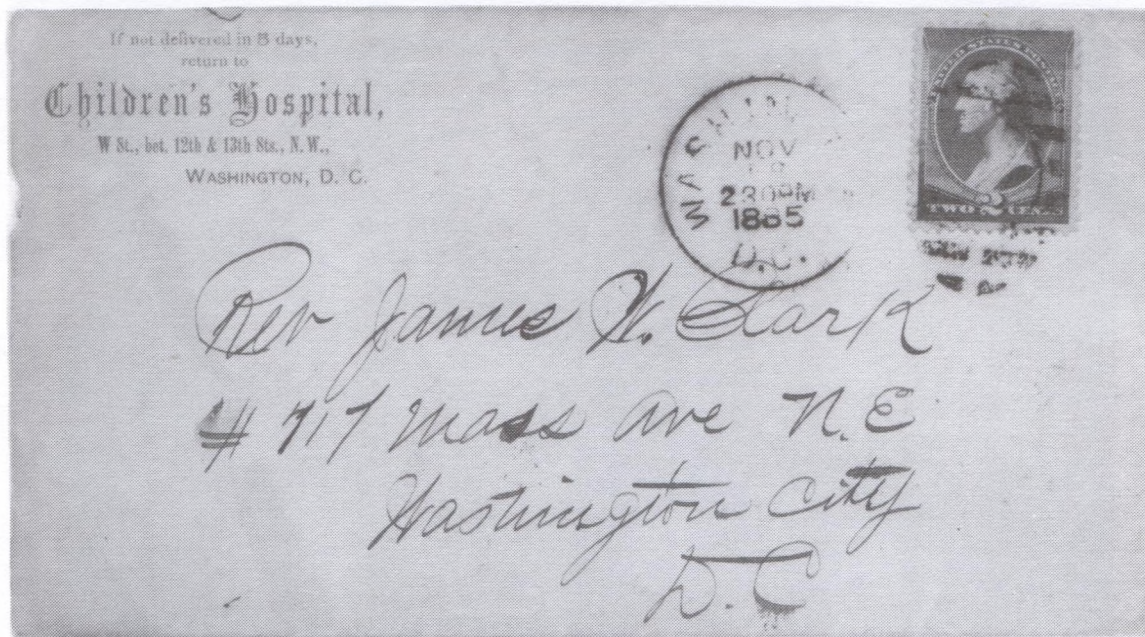 If not delivered in 5 days,
return to
Children's Hospital,
W St., bet. 12th & 13th Sts., N.W.,
WASHINGTON, D. C.
NOV
230PM
1885
D.C.
UNITED STATES POSTAGE
TWO 2 CENTS
Rev James W. Clark
# 717 Mass Ave N.E
Washington City
D.C